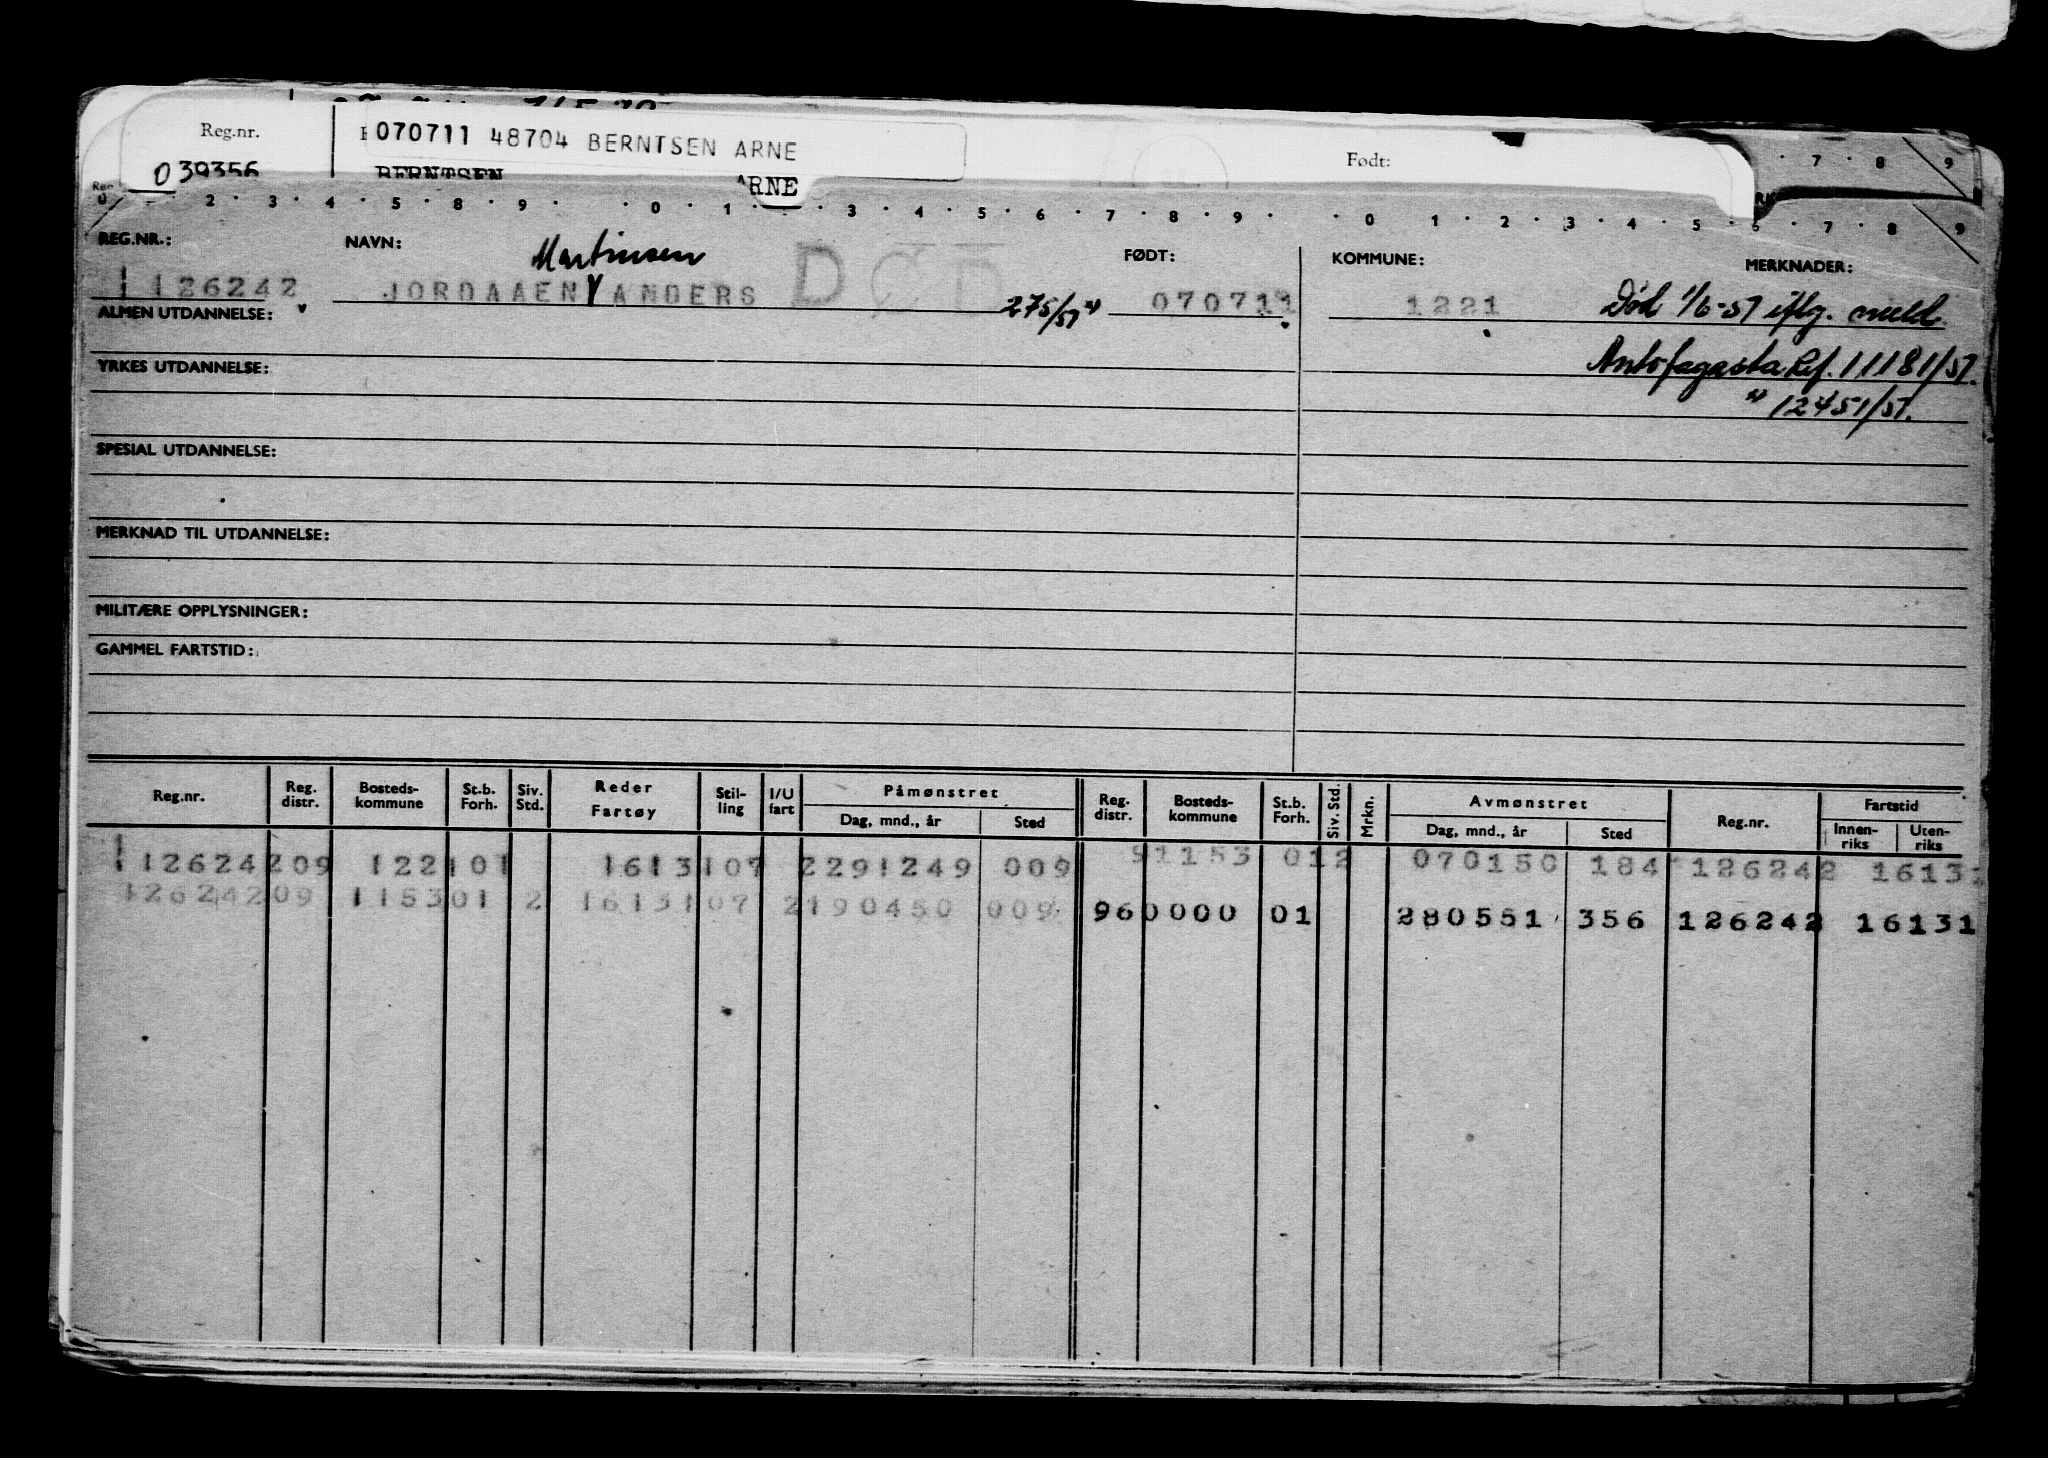 Reg.nr.
070711 48704 BERNTSEN ARNE
Født:
039356 BERNTSEN ARNE
7 8 9
2 3 4 5 8 9 0 1 3 4 5 6 7 8 9 0 1 2 3 4 5 6 7 8 9
REG.NR.: NAVN: Martinsen DØD FØDT: KOMMUNE: MERKNADER:
126242 JORDAAEN ANDERS 275/57 070711 1221 Død 1/6-57 iflg. meld.
ALMEN UTDANNELSE:
Antofagasta Ref. 11181/57.
YRKES UTDANNELSE:
" 12451/57.
SPESIAL UTDANNELSE:
MERKNAD TIL UTDANNELSE:
MILITÆRE OPPLYSNINGER:
GAMMEL FARTSTID:
Reg.nr. Reg. distr. Bosteds-kommune St.b. Forh. Siv. Std. Reder Fartøy Stil-ling I/U fart Påmønstret Dag, mnd., år Sted Reg. distr. Bosteds-kommune St.b. Forh. Siv. Std. Mrkn. Avmønstret Dag, mnd., år Sted Reg.nr. Fartstid Innen-riks Uten-riks
126242 09 1221 01 1613 107 2 291249 009 91153 01 2 070150 184 126242 16131
126242 09 1153 01 2 1613 107 2 190450 009 96 0000 01 280551 356 126242 16131